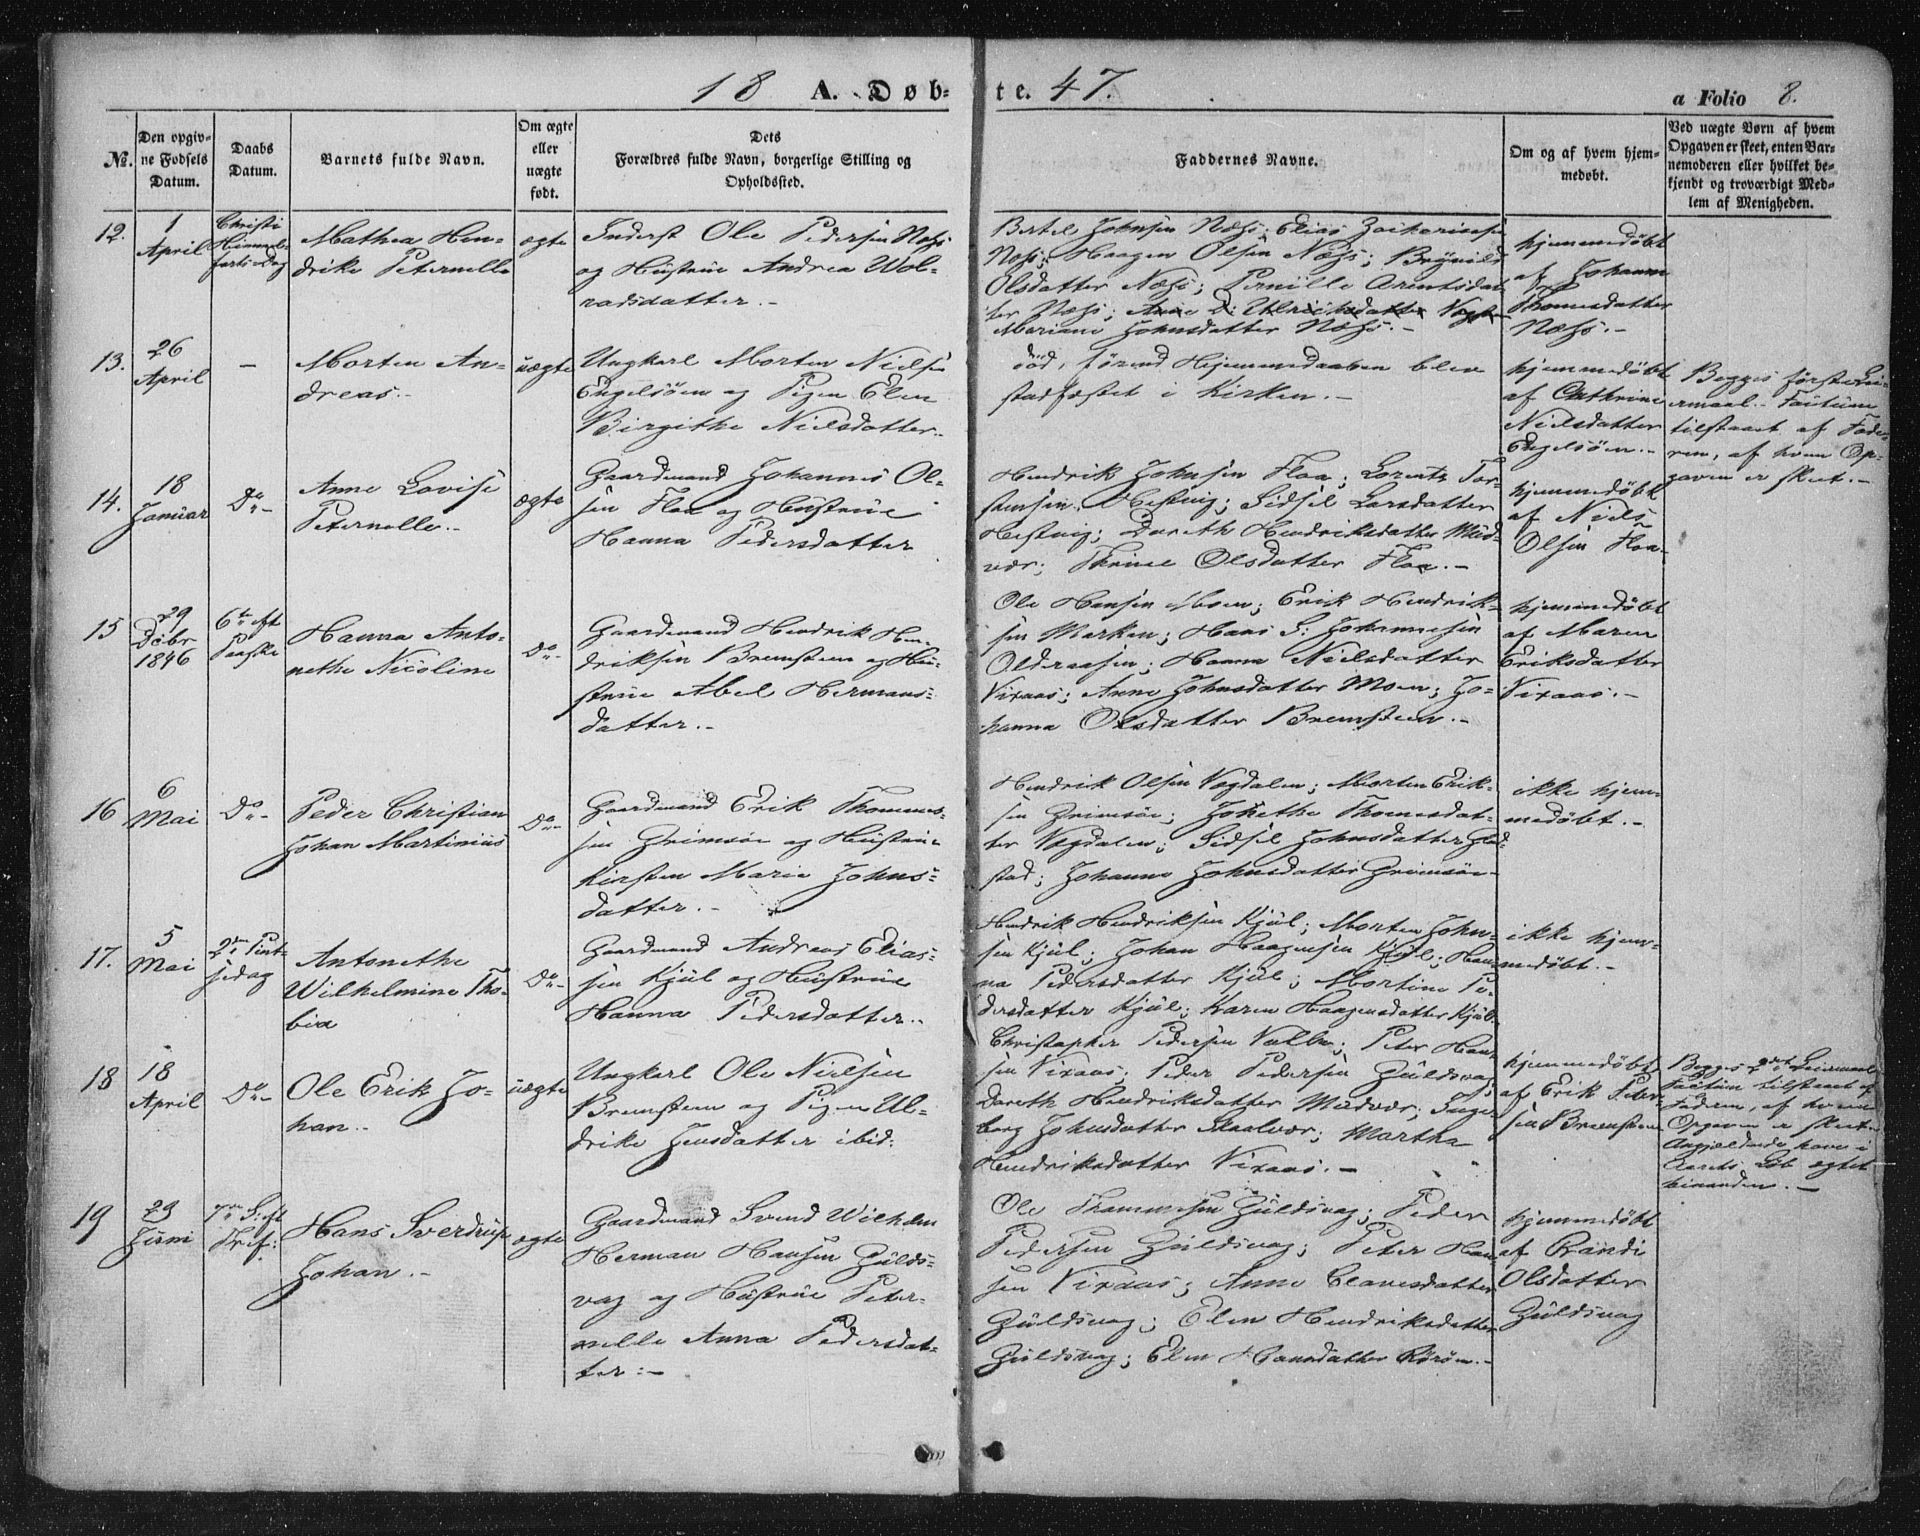 18 A. Døb-
te. 47.
a Folio 8.
№.
Den opgiv-
ne Fødsels
Datum.
Daabs
Datum.
Barnets fulde Navn.
Om ægte
eller
uægte
født.
Dets
Forældres fulde Navn, borgerlige Stilling og
Opholdssted.
Faddernes Navne.
Om og af hvem hjem-
medøbt.
Ved uægte Børn af hvem
Opgaven er skeet, enten Bar-
nemoderen eller hvilket be-
kjendt og troværdigt Med-
lem af Menigheden.
12.
1
April
Christi
Himmel-
farts-Dag
Mathea Hen-
drike Peternelle
ægte
Inderst Ole Pedersen Næss
og Hustrue Andrea Wol-
radsdatter.-
Bertel Johnsen Næss; Elias Zachariasen
Næss; Haagen Olsen Næss;
Olsdatter Næss; Pernille Arentsdat-
ter Næss;
Mariane Johnsdatter Næss.-
hjemmedøbt
af Johanna
Thomesdatter
Næss.-
13.
26
April
-
Morten An-
dreas.-
uægte
Ungkarl Morten Nielsen
Engelsöen og Pigen Elen
Birgithe Nielsdatter.-
död, førend Hjemmedaaben blev
stadfæstet i Kirken.-
hjemmedøbt
af Cathrine
Nielsdatter
Engelsöen.-
Begges første Lei-
ermaal.- Factum
tilstaaet af Fade-
ren, af hvem Op-
gaven er skeet.-
14.
18
Januar
Do-
Anne Lovise
Peternelle.-
ægte
Gaardmand Johannes Ol-
sen Floa og Hustrue
Hanna Pedersdatter
Hendrik Johnsen Floa; Lorents Tor-
stensen Hestvig; Sidsel Larsdatter
Hestvig; Doreth Hendriksdatter Müd-
vær; Thrine Olsdatter Floa.-
hjemmedøbt
af Niels
Olsen Floa-
15
29
Dcbr
1846
6te eft
Paaske
Hanna Anto-
nethe Nicoline
Do-
Gaardmand Hendrik Hen-
driksen Bremsteen og Hu-
strue Abel Hermans-
datter.-
Ole Hansen Moen; Erik Hendrik-
sen Marken; Hans S: Johannesen
Olderaasen; Hanna Nielsdatter
Vixaas; Anne Johnsdatter Moen; Jo-
hanna Olsdatter Bremsteen.-
hjemmedøbt
af Maren
Eriksdatter
Vixaas.-
16
6
Mai
Do-
Peder Christian
Johan Martinius
Do-
Gaardmand Erik Thommes-
sen Grimsöe og Hustrue
Kirsten Marie Johns-
datter.-
Hendrik Olsen Vægdalen; Morten Erik-
sen Grimsöe; Johethe Thomesdat-
ter Vægdalen; Sidsel Johnsdatter
stad; Johanna Johnsdatter Grimsöe-
ikke hjem-
medøbt.-
17.
5
Mai
2den Pint-
sedag
Antonethe
Wilhelmine Tho-
bia
Do-
Gaardmand Andreas Elias-
sen Kjül og Hustrue
Hanna Pedersdatter.-
Hendrik Hendriksen Kjül; Morten John-
sen Kjül; Johan Haagensen Kjül; Han-
na Pedersdatter Kjül; Martine Pe-
dersdatter Kjül; Karen Haagensdatter Kjül-
ikke hjem-
medøbt.-
18
18
April
Do-
Ole Erik Jo-
han.-
uægte
Ungkarl Ole Nielsen
Bremsteen og Pigen Ul-
drike Jensdatter ibid:
Christopher Pedersen Valln; Peter Han-
sen Vixaas; Peder Pedersen Guldsvag;
Doreth Hendriksdatter Müdvær; Inge-
borg Johnsdatter Skaalvær; Martha
Hendriksdatter Vixaas.-
hjemmedøbt
af Erik Peder-
sen Bremsteen
Begges 2det Leiermaal
Factum tilstaaet af
Faderen, af hvem
Opgaven er skeet-
Angjældende have i
Aarets Løb ægtet
hinanden.-
19
29
Juni
7de S: eft
Tref:
Hans Sverdrup
Johan.-
ægte
Gaardmand Svend Wilhelm
Herman Hansen Gulds-
vag og Hustrue Peter-
nelle Anna Pedersdat-
ter:-
Ole Thommesen Guldsvag; Peder
Pedersen Guldsvag; Peter Han
sen Vixaas; Anne Clausdatter
Guldsvag; Elen Hendriksdatter
Guldsvag; Elen Hansdatter Rörön.-
hjemmedøbt
af Randi
Olsdatter
Guldsvag